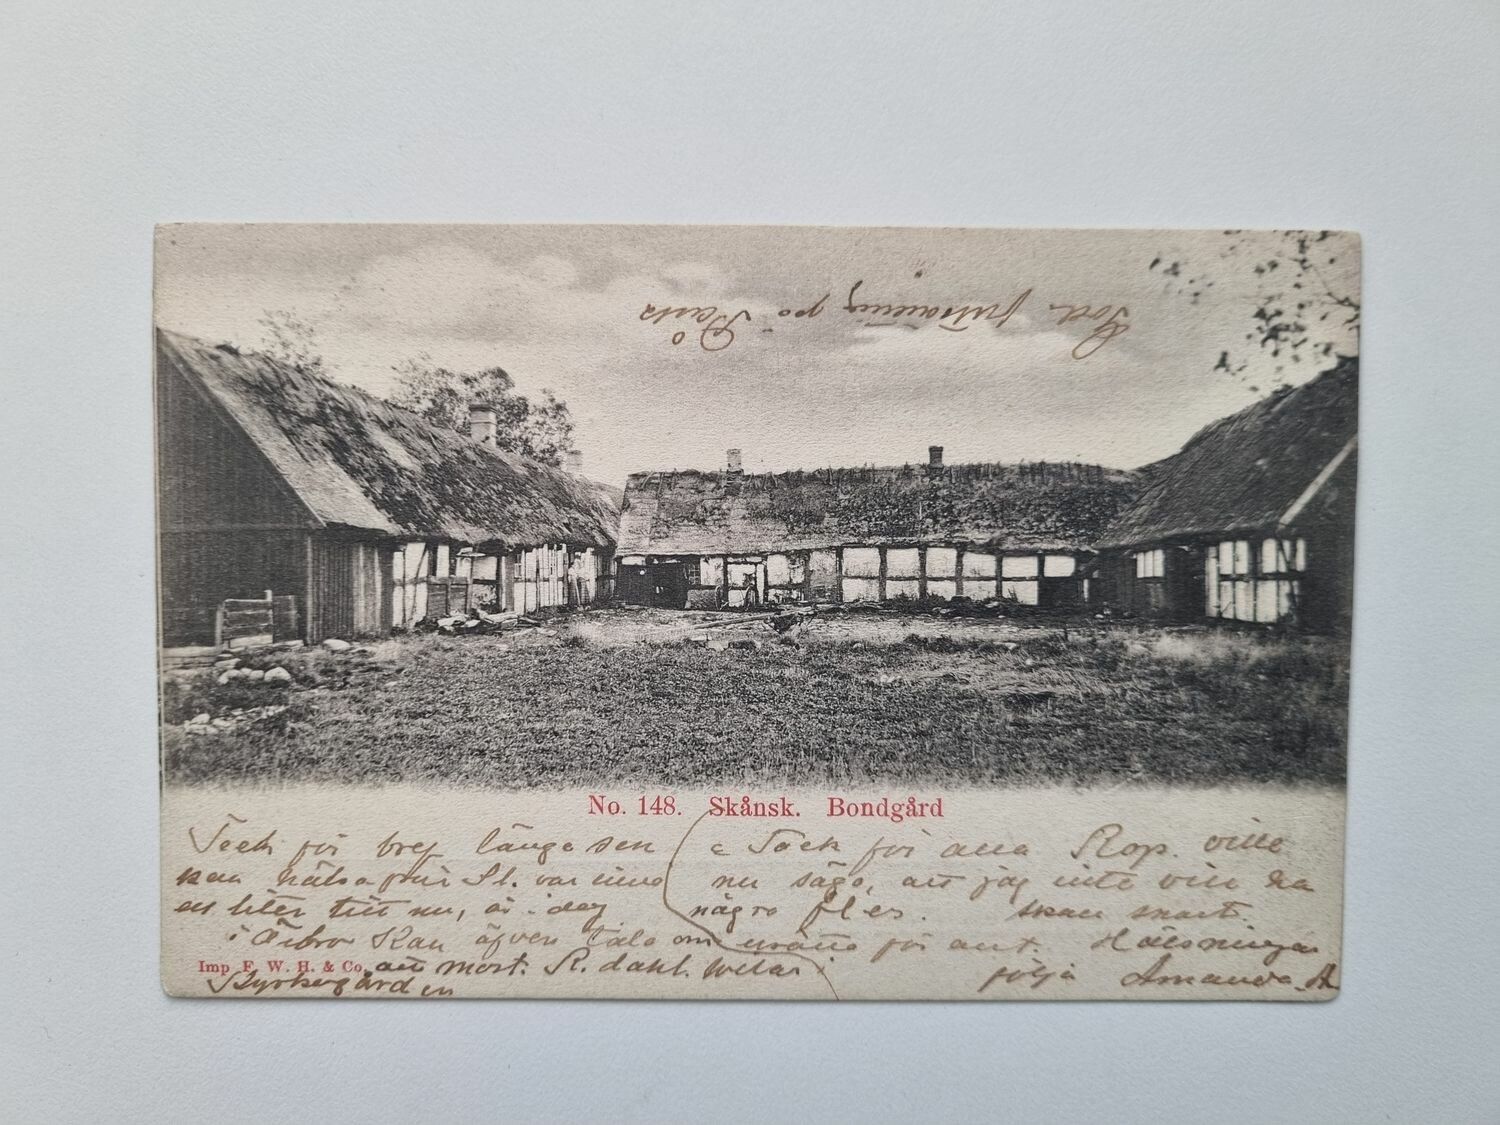 God fortsättning på
No. 148. Skånsk. Bondgård
Tack för bref länge sen
kan hälsa från St. var inne
en liten titt nu, är i dag
i Örebro Kan äfven tala om
att most. R. dahl. hvilar i
Kyrkogården
Tack för alla Kop. ville
nu säga, att jag inte vill ha
några fler. skall snart
för ant. Hälsningar
följa Amanda. A
Imp F. W. H. & Co.